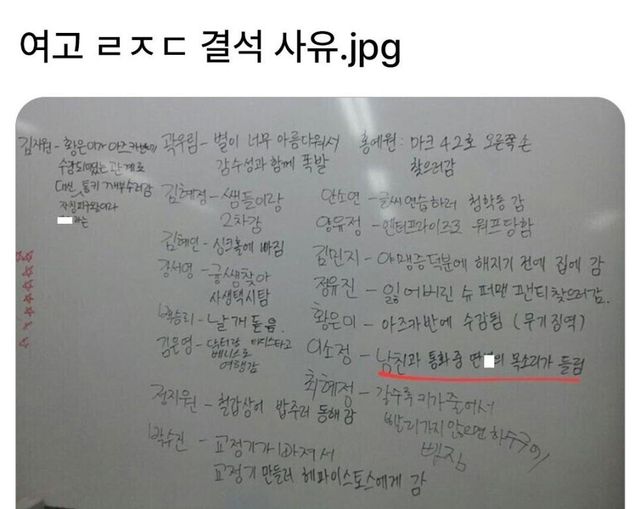 여고 ㄹㅈㄷ 결석 사유.jpg
김지원 - 황은이가 아즈카반에
수감되었는 관계로
대신
곽우림 - 별이 너무 아름다워서
감수성과 함께 폭발
홍예원 : 마크 42호 오른쪽 손
찾으러감
김혜정 - 쌤들이랑
2차감
안소연 - 글씨연습하러 청학동 감
양유정 - 엔터프라이즈호 워프당함
김혜인 - 싱크홀에 빠짐
김민지 - 야맹증덕분에 해지기 전에 집에 감
강서영 - 궁쌤찾아
사생택시탐
정유진 - 잃어버린 슈퍼맨 팬티찾으러감.
백승리 - 날개 돋음
황은미 - 아즈카반에 수감됨 (무기징역)
김은영 - 닥터랑 타디스타고
베니스로
여행감
이소정 - 남친과 통화중 딴 의 목소리가 들림
정지원 - 철갑상어 밥주러 동해 감
최혜정 - 갈수록 키가 줄어서
빨리가지 않으면 하수구에
빠짐
박수진 - 교정기가 빠져서
교정기 만들러 헤파이스토스에게 감